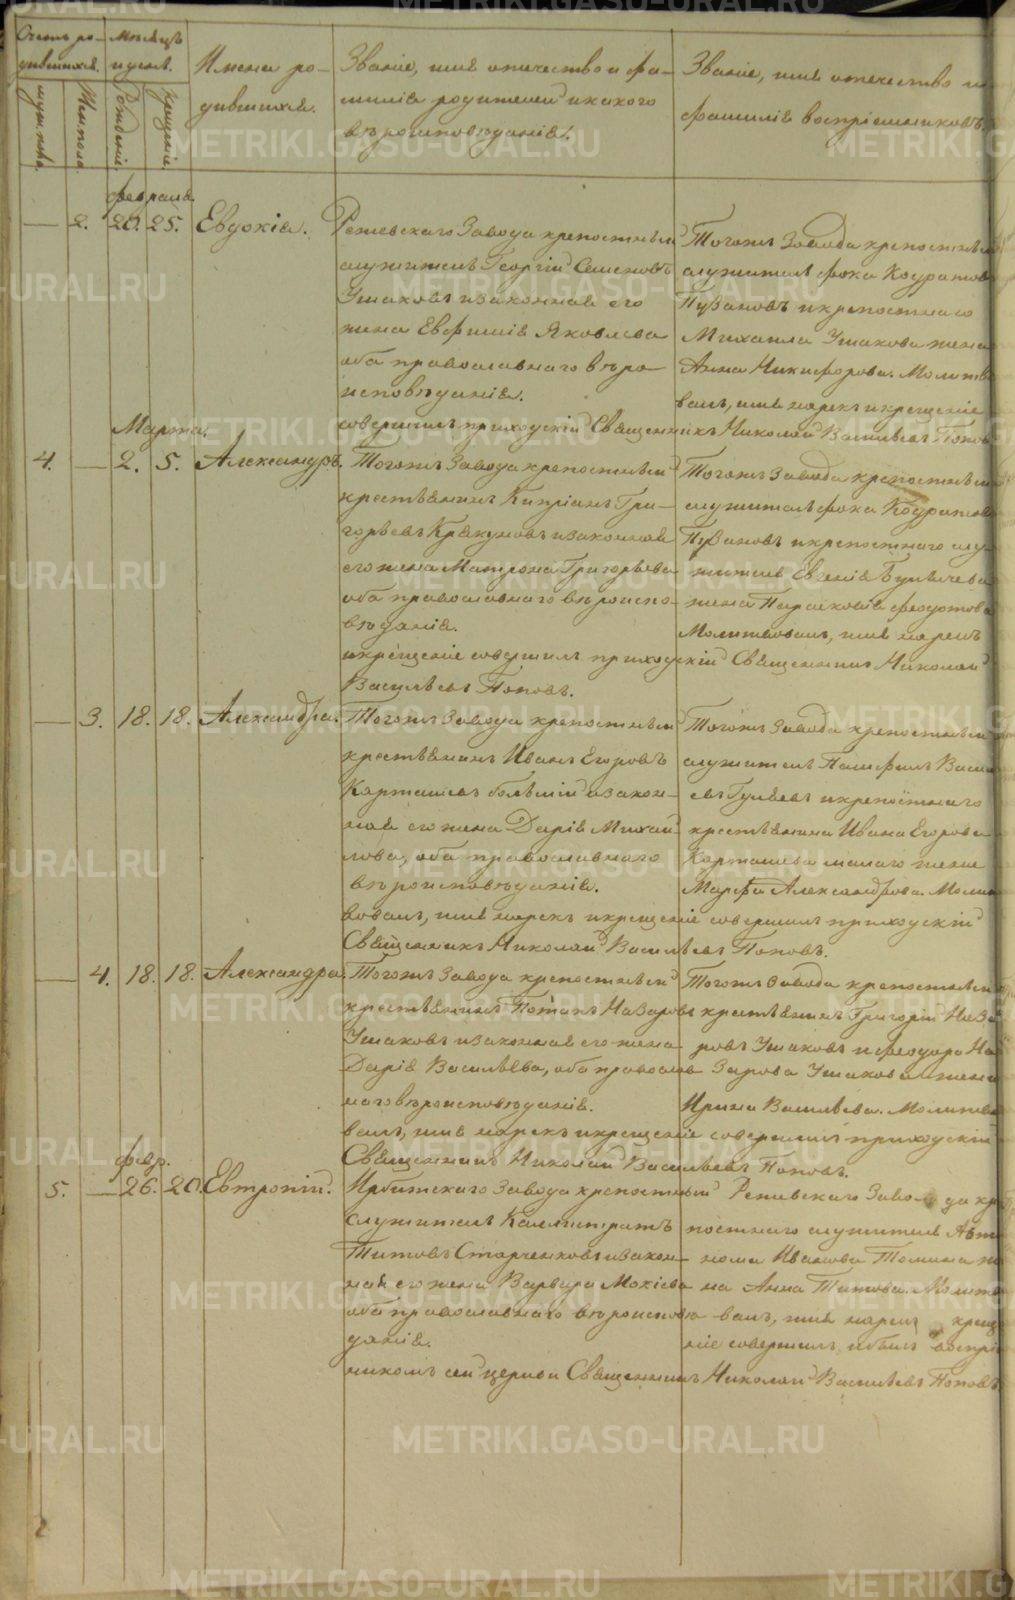 Счетъ ро-
дившихся.
Мѣсяцъ
и день.
муж. пола.
Жен. пола.
Рожденія.
Крещенія.
Имена ро-
дившихся.
Званіе, имя отечество и фа-
милія родителей и какого
вѣроисповѣданія.
Званіе, имя отечество и
фамилія воспріемниковъ.
февраля
— 2. 20. 25. Евдокія.
Режевскаго Завода крепостный
служитель Георгій Семеновъ
Ушаковъ и законная его
жена Евфимія Яковлева
оба православнаго вѣро-
исповѣданія.
Тогожъ Завода крепостный
служитель Фока Кодратов
Пузановъ и крепостнаго
Михаила Ушакова жена
Анна Никифорова. Молитв
валъ, имя нарекъ и крещеніе
совершилъ приходскій Священникъ Николай Васильевъ Попов
Марта.
4. — 2. 5. Александръ.
Тогожъ Завода крепостный
крестьянинъ Кипріанъ Гри-
горьевъ Крякуновъ и законная
его жена Матрона Григорьева
оба православнаго вѣроиспо-
вѣданія.
Тогожъ Завода крепостный
служитель Фока Кодратов
Пузановъ и крепостнаго слу-
жителя Евгенія Бунвичева
жена Парасковія Федотова
Молитвовалъ, имя нарекъ
и крещеніе совершилъ приходскій Священникъ Николай
Васильевъ Поповъ.
— 3. 18. 18. Александра.
Тогожъ Завода крепостный
крестьянинъ Иванъ Егоровъ
Карташевъ большій и закон-
ная его жена Дарія Михай-
лова, оба православнаго
вѣроисповѣданія.
Тогожъ Завода крепостный
служитель Памфилъ Васил
евъ и крепостнаго
крестьянина Ивана Егорова
Карташева малаго жена
Марфа Александрова. Молит
вовалъ, имя нарекъ и крещеніе совершилъ приходскій
Священникъ Николай Васильевъ Поповъ.
— 4. 18. 18. Александра.
Тогожъ Завода крепостный
крестьянинъ Потапъ Назаровъ
Ушаковъ и законная его жена
Дарія Васильева, оба православ
наго вѣроисповѣданія.
Тогожъ Завода крепостный
крестьянинъ Григорій Наза
ровъ Ушаковъ и Феодора На
зарова Ушакова жена
Ирина Васильева. Молитво
валъ, имя нарекъ и крещеніе совершилъ приходскій
Священникъ Николай Васильевъ Поповъ.
февр.
5. — 26. 20. Евтропій.
Ирбитскаго Завода крепостный
служитель Каллистратъ
Титовъ Старченковъ и закон-
ная его жена Варвара Мокіева
оба православнаго вѣроисповѣ
данія.
Режевскаго Завода кре
постнаго служителя Авто
нома Иванова Томина же
на Анна Титова. Молитво
валъ, имя нарекъ креще
ніе совершилъ и былъ воспріе
никомъ сей церкви Священникъ Николай Васильевъ Поповъ
METRIKI.GASO-URAL.RU